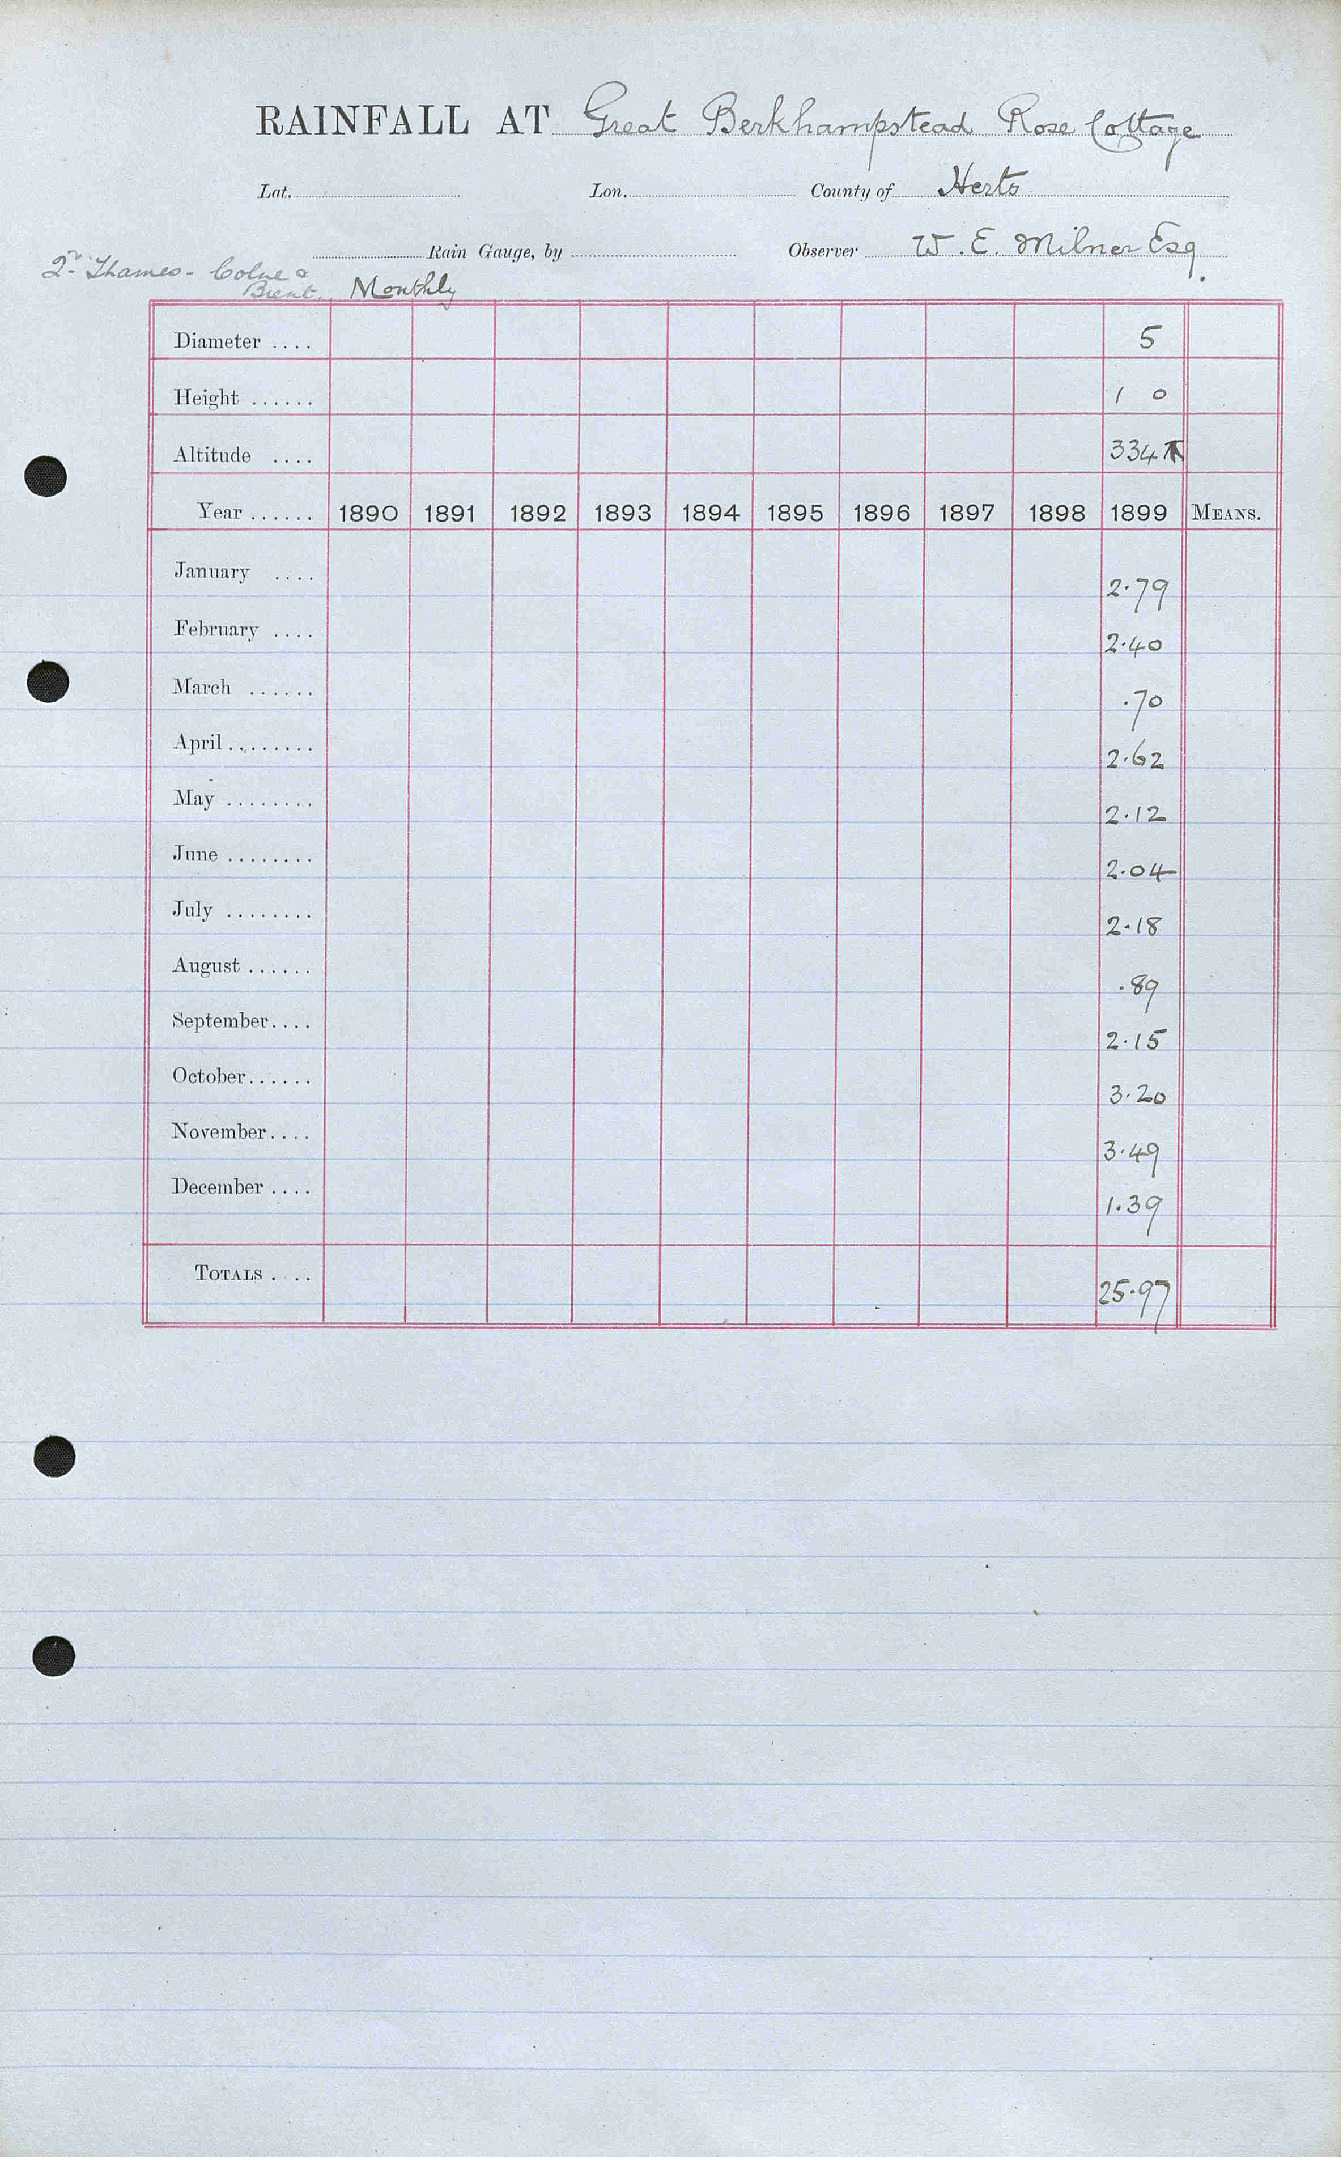 RAINFALL AT Great Berkhampstead Rose Cottage
Lat. Lon. County of Herts
Rain Gauge, by Observer W. E. Milner Esq.
2r Thames - Colne &
Brent Monthly
Diameter .... 5
Height ...... 1 0
Altitude .... 334 T
Year ...... 1890 1891 1892 1893 1894 1895 1896 1897 1898 1899 MEANS.
January .... 2.79
February .... 2.40
March ...... .70
April ........ 2.62
May ........ 2.12
June ........ 2.04
July ........ 2.18
August ...... .89
September.... 2.15
October...... 3.20
November.... 3.49
December .... 1.39
TOTALS .... 25.97